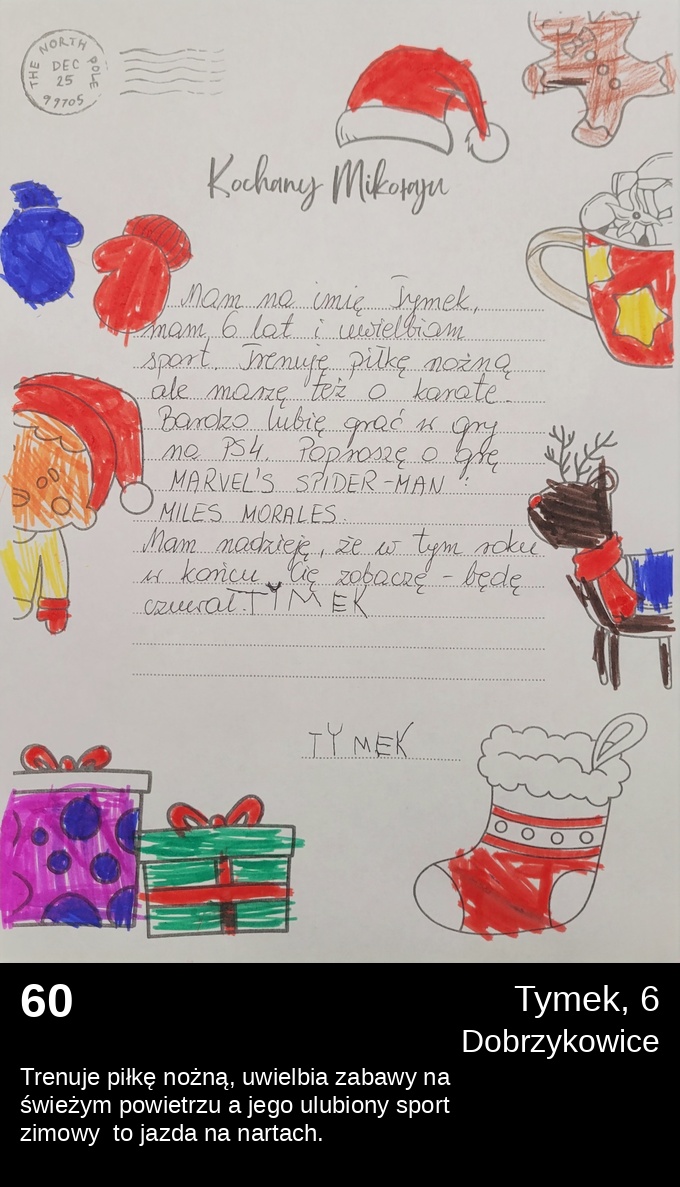 THE NORTH POLE
DEC
25
99705
Kochany Mikołaju
Mam na imię Tymek,
mam 6 lat i uwielbiam
sport. Trenuję piłkę nożną
ale marzę też o karate.
Bardzo lubię grać w gry
na PS4. Poproszę o grę
MARVEL'S SPIDER-MAN :
MILES MORALES.
Mam nadzieję, że w tym roku
w końcu Cię zobaczę - będę
czuwał. TYMEK
TYMEK
60
Tymek, 6
Dobrzykowice
Trenuje piłkę nożną, uwielbia zabawy na
świeżym powietrzu a jego ulubiony sport
zimowy to jazda na nartach.